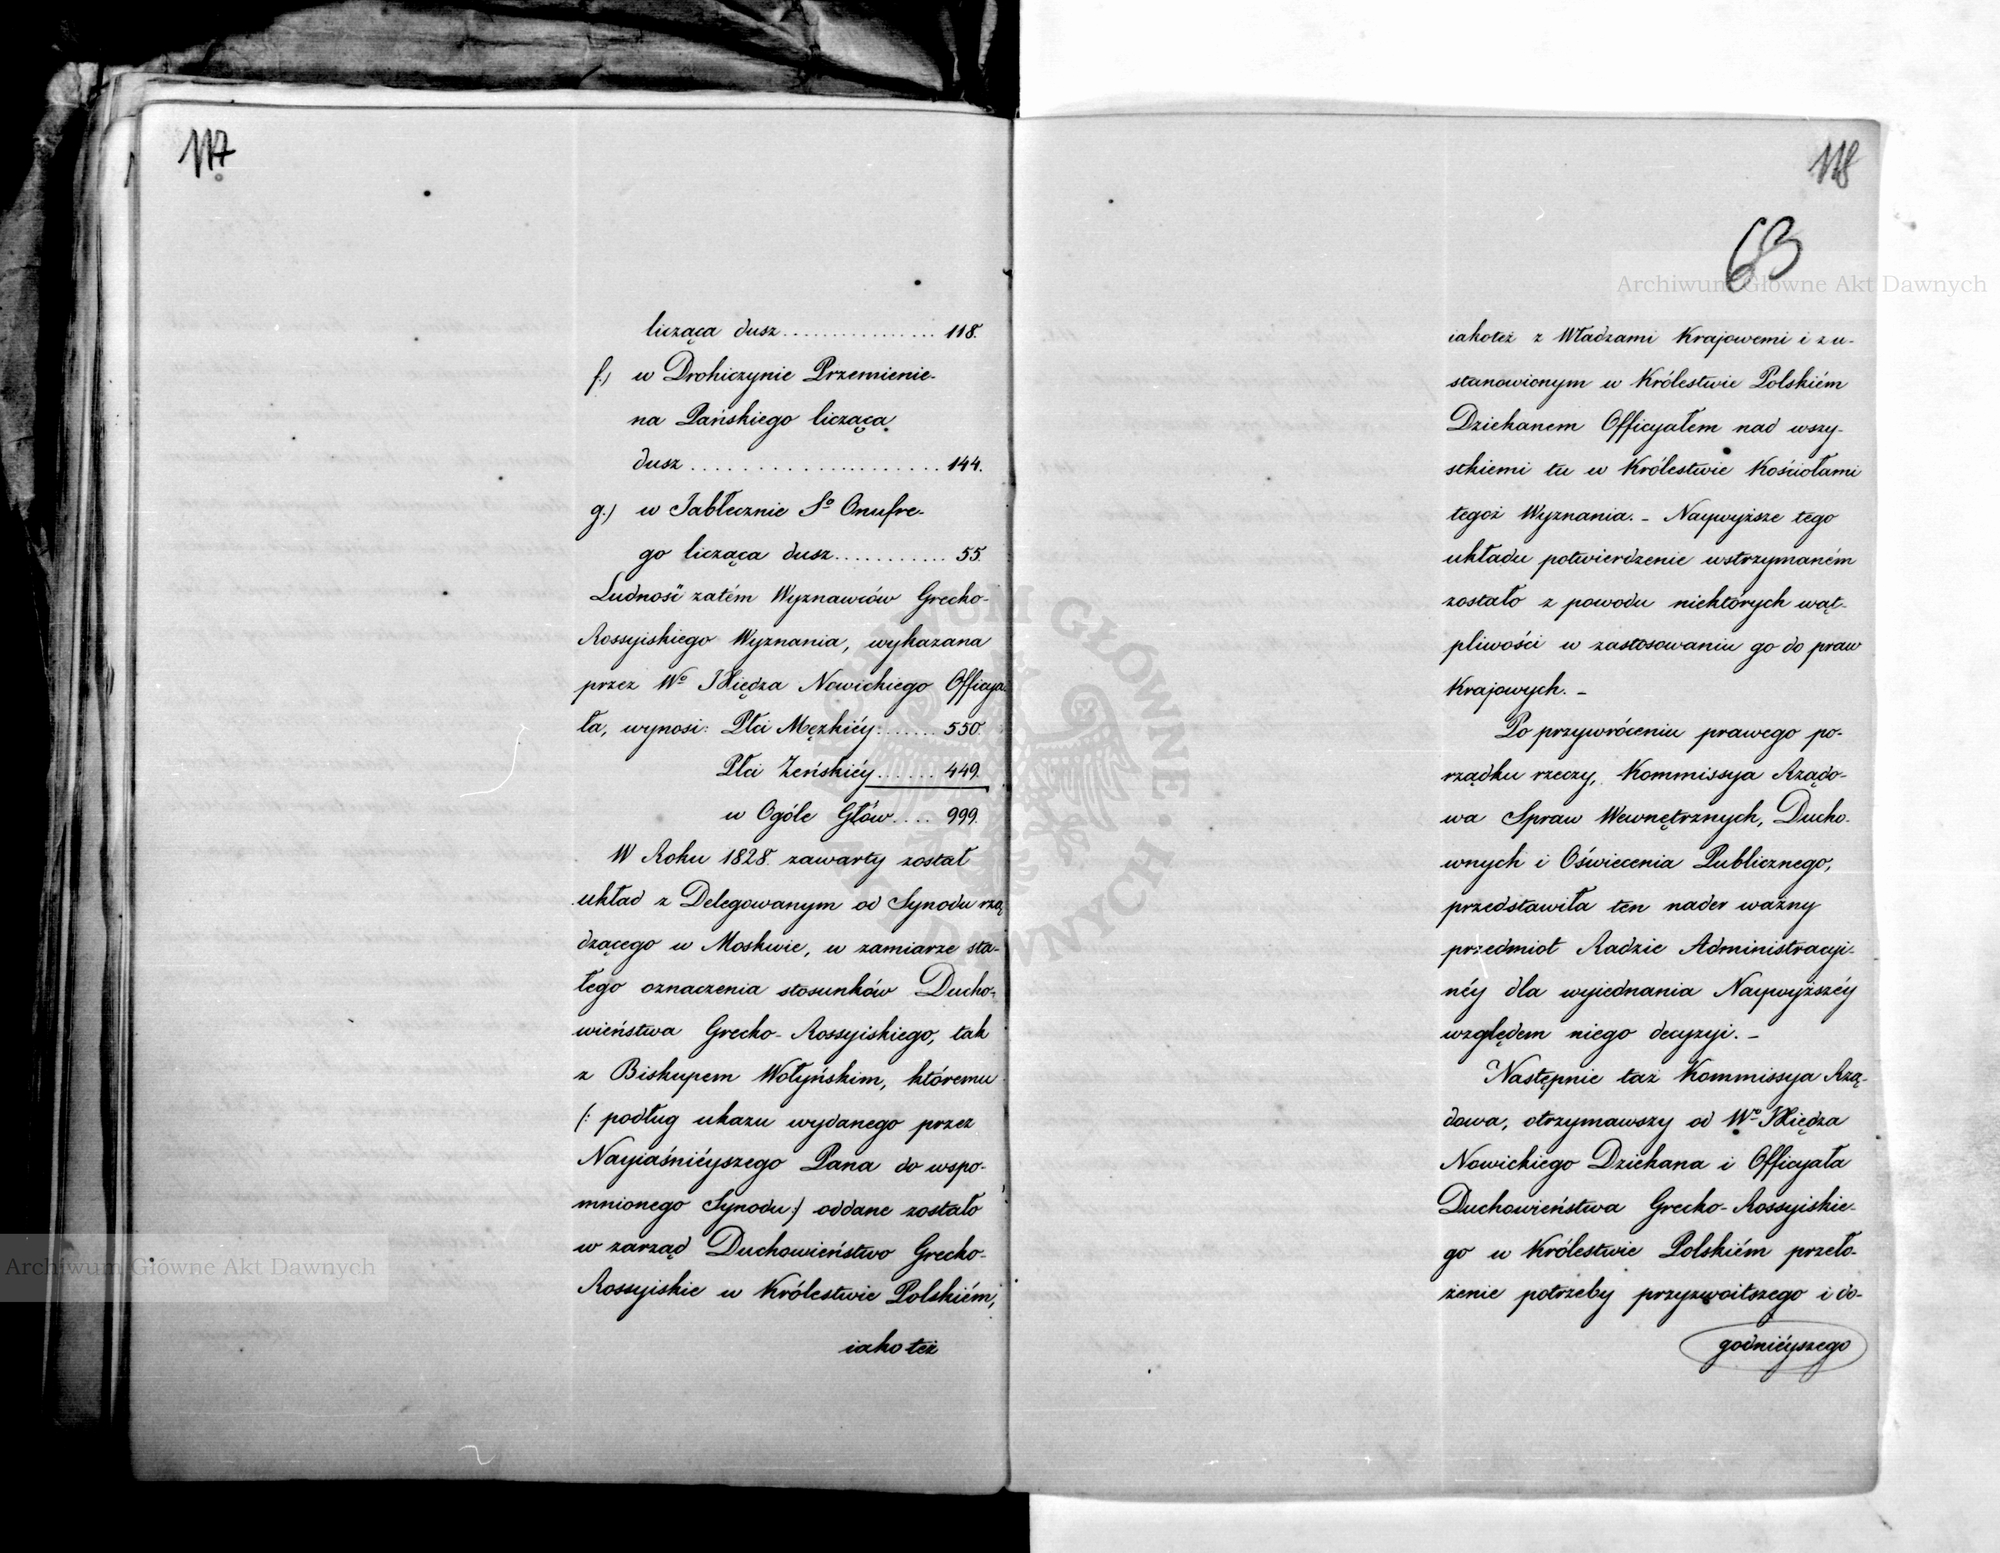 117
licząca dusz................ 118.
f.) w Drohiczynie Przemienie-
nia Pańskiego licząca
dusz........................ 144.
g.) w Jabłecznie Sº Onufre-
go licząca dusz........... 55.
Ludność zatém Wyznawców Grecko-
Rossyiskiego Wyznania, wykazana
przez Wº Xiędza Nowickiego Officya-
ła, wynosi: Płci Męzkiéy....... 550.
Płci Żeńskiéy...... 449.
w Ogóle Głów.... 999.
W Roku 1828. zawarty został
układ z Delegowanym od Synodu rzą
dzącego w Moskwie, w zamiarze sta-
łego oznaczenia stosunków Ducho-
wieństwa Grecko-Rossyiskiego, tak
z Biskupem Wołyńskim, któremu
(: podług ukazu wydanego przez
Nayiaśniéyszego Pana do wspo-
mnionego Synodu:) oddane zostało
w zarząd Duchowieństwo Grecko-
Rossyiskie w Królestwie Polskiém,
iako też
118
63
iakoteż z Władzami Krajowemi i z u-
stanowionym w Królestwie Polskiém
Dziekanem Officyałem nad wszy-
stkiemi tu w Królestwie Kościołami
tegoż Wyznania. - Naywyższe tego
układu potwierdzenie wstrzymaném
zostało z powodu niektórych wąt-
pliwości w zastosowaniu go do praw
Krajowych. -
Po przywróceniu prawego po-
rządku rzeczy, Kommissya Rządo-
wa Spraw Wewnętrznych, Ducho-
wnych i Oświecenia Publicznego,
przedstawiła ten nader ważny
przedmiot Radzie Administracyi-
néy dla wyiednania Naywyższéy
względem niego decyzyi. -
Następnie taż Kommissya Rzą-
dowa, otrzymawszy od Wº Xiędza
Nowickiego Dziekana i Officyała
Duchowieństwa Grecko-Rossyiskie-
go w Królestwie Polskiém przeło-
żenie potrzeby przyzwoitszego i do-
godniéyszego
Archiwum Główne Akt Dawnych
Archiwum Główne Akt Dawnych
ARCHIWUM GŁÓWNE AKT DAWNYCH